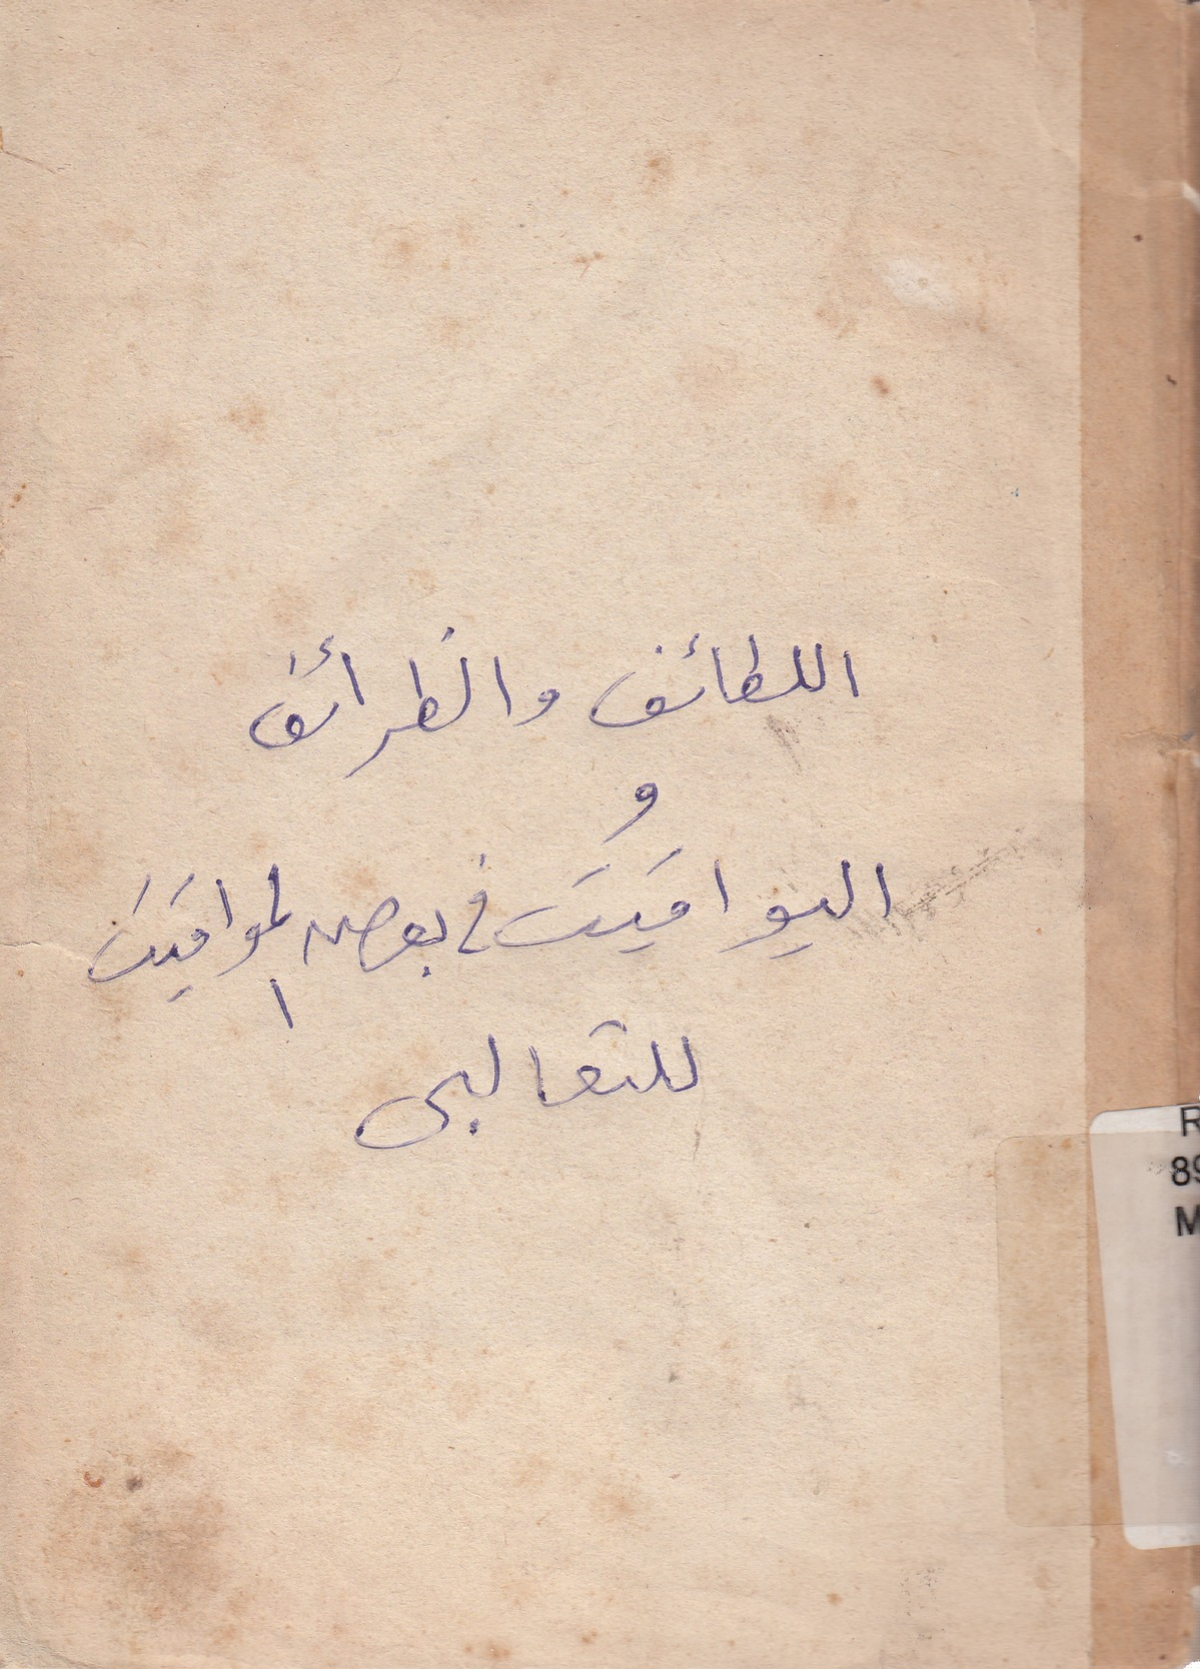 اللطائف والظرائف
و
اليواقيت في بعض المواقيت
للثعالبى
R
89
M